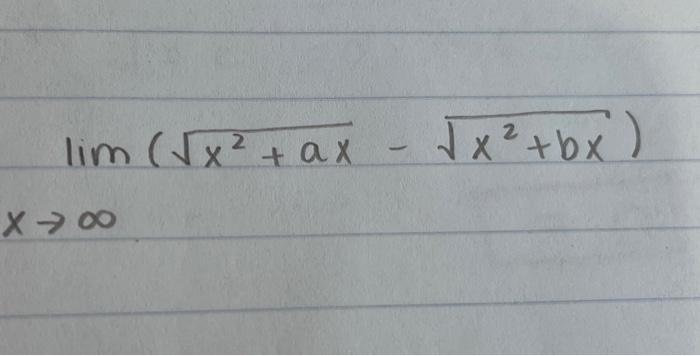 lim (√x² + ax - √x²+bx)
x → ∞